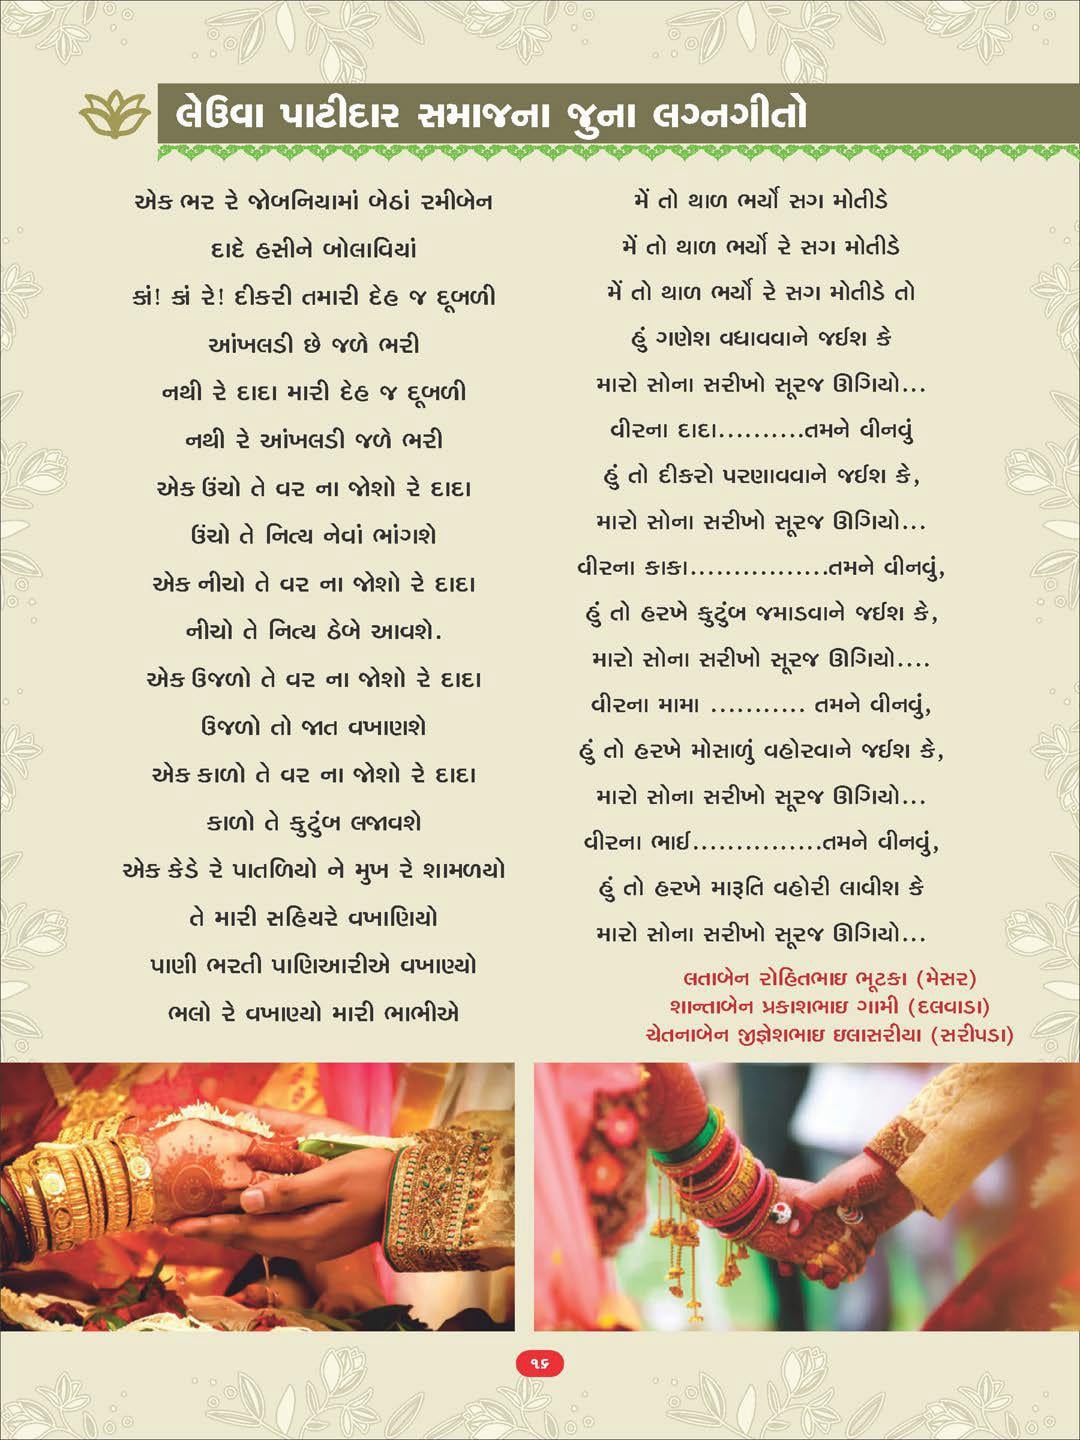 લેઉવા પાટીદાર સમાજના જુના લગ્નગીતો
એક ભર રે જોબનિયામાં બેઠાં રમીબેન
દાદે હસીને બોલાવિયાં
કાં! કાં રે! દીકરી તમારી દેહ જ દૂબળી
આંખલડી છે જળે ભરી
નથી રે દાદા મારી દેહ જ દૂબળી
નથી રે આંખલડી જળે ભરી
એક ઉંચો તે વર ના જોશો રે દાદા
ઉંચો તે નિત્ય નેવાં ભાંગશે
એક નીચો તે વર ના જોશો રે દાદા
નીચો તે નિત્ય ઠેબે આવશે.
એક ઉજળો તે વર ના જોશો રે દાદા
ઉજળો તો જાત વખાણશે
એક કાળો તે વર ના જોશો રે દાદા
કાળો તે કુટુંબ લજાવશે
એક કેડે રે પાતળિયો ને મુખ રે શામળયો
તે મારી સહિયરે વખાણિયો
પાણી ભરતી પાણિઆરીએ વખાણ્યો
ભલો રે વખાણ્યો મારી ભાભીએ
મેં તો થાળ ભર્યો સગ મોતીડે
મેં તો થાળ ભર્યો રે સગ મોતીડે
મેં તો થાળ ભર્યો રે સગ મોતીડે તો
હું ગણેશ વધાવવાને જઈશ કે
મારો સોના સરીખો સૂરજ ઊગિયો...
વીરના દાદા..........તમને વીનવું
હું તો દીકરો પરણાવવાને જઈશ કે,
મારો સોના સરીખો સૂરજ ઊગિયો...
વીરના કાકા................તમને વીનવું,
હું તો હરખે કુટુંબ જમાડવાને જઈશ કે,
મારો સોના સરીખો સૂરજ ઊગિયો....
વીરના મામા ........... તમને વીનવું,
હું તો હરખે મોસાળું વહોરવાને જઈશ કે,
મારો સોના સરીખો સૂરજ ઊગિયો...
વીરના ભાઈ...............તમને વીનવું,
હું તો હરખે મારૂતિ વહોરી લાવીશ કે
મારો સોના સરીખો સૂરજ ઊગિયો...
લતાબેન રોહિતભાઇ ભૂટકા (મેસર)
શાન્તાબેન પ્રકાશભાઇ ગામી (દલવાડા)
ચેતનાબેન જીજ્ઞેશભાઇ ઇલાસરીયા (સરીપડા)
૧૬